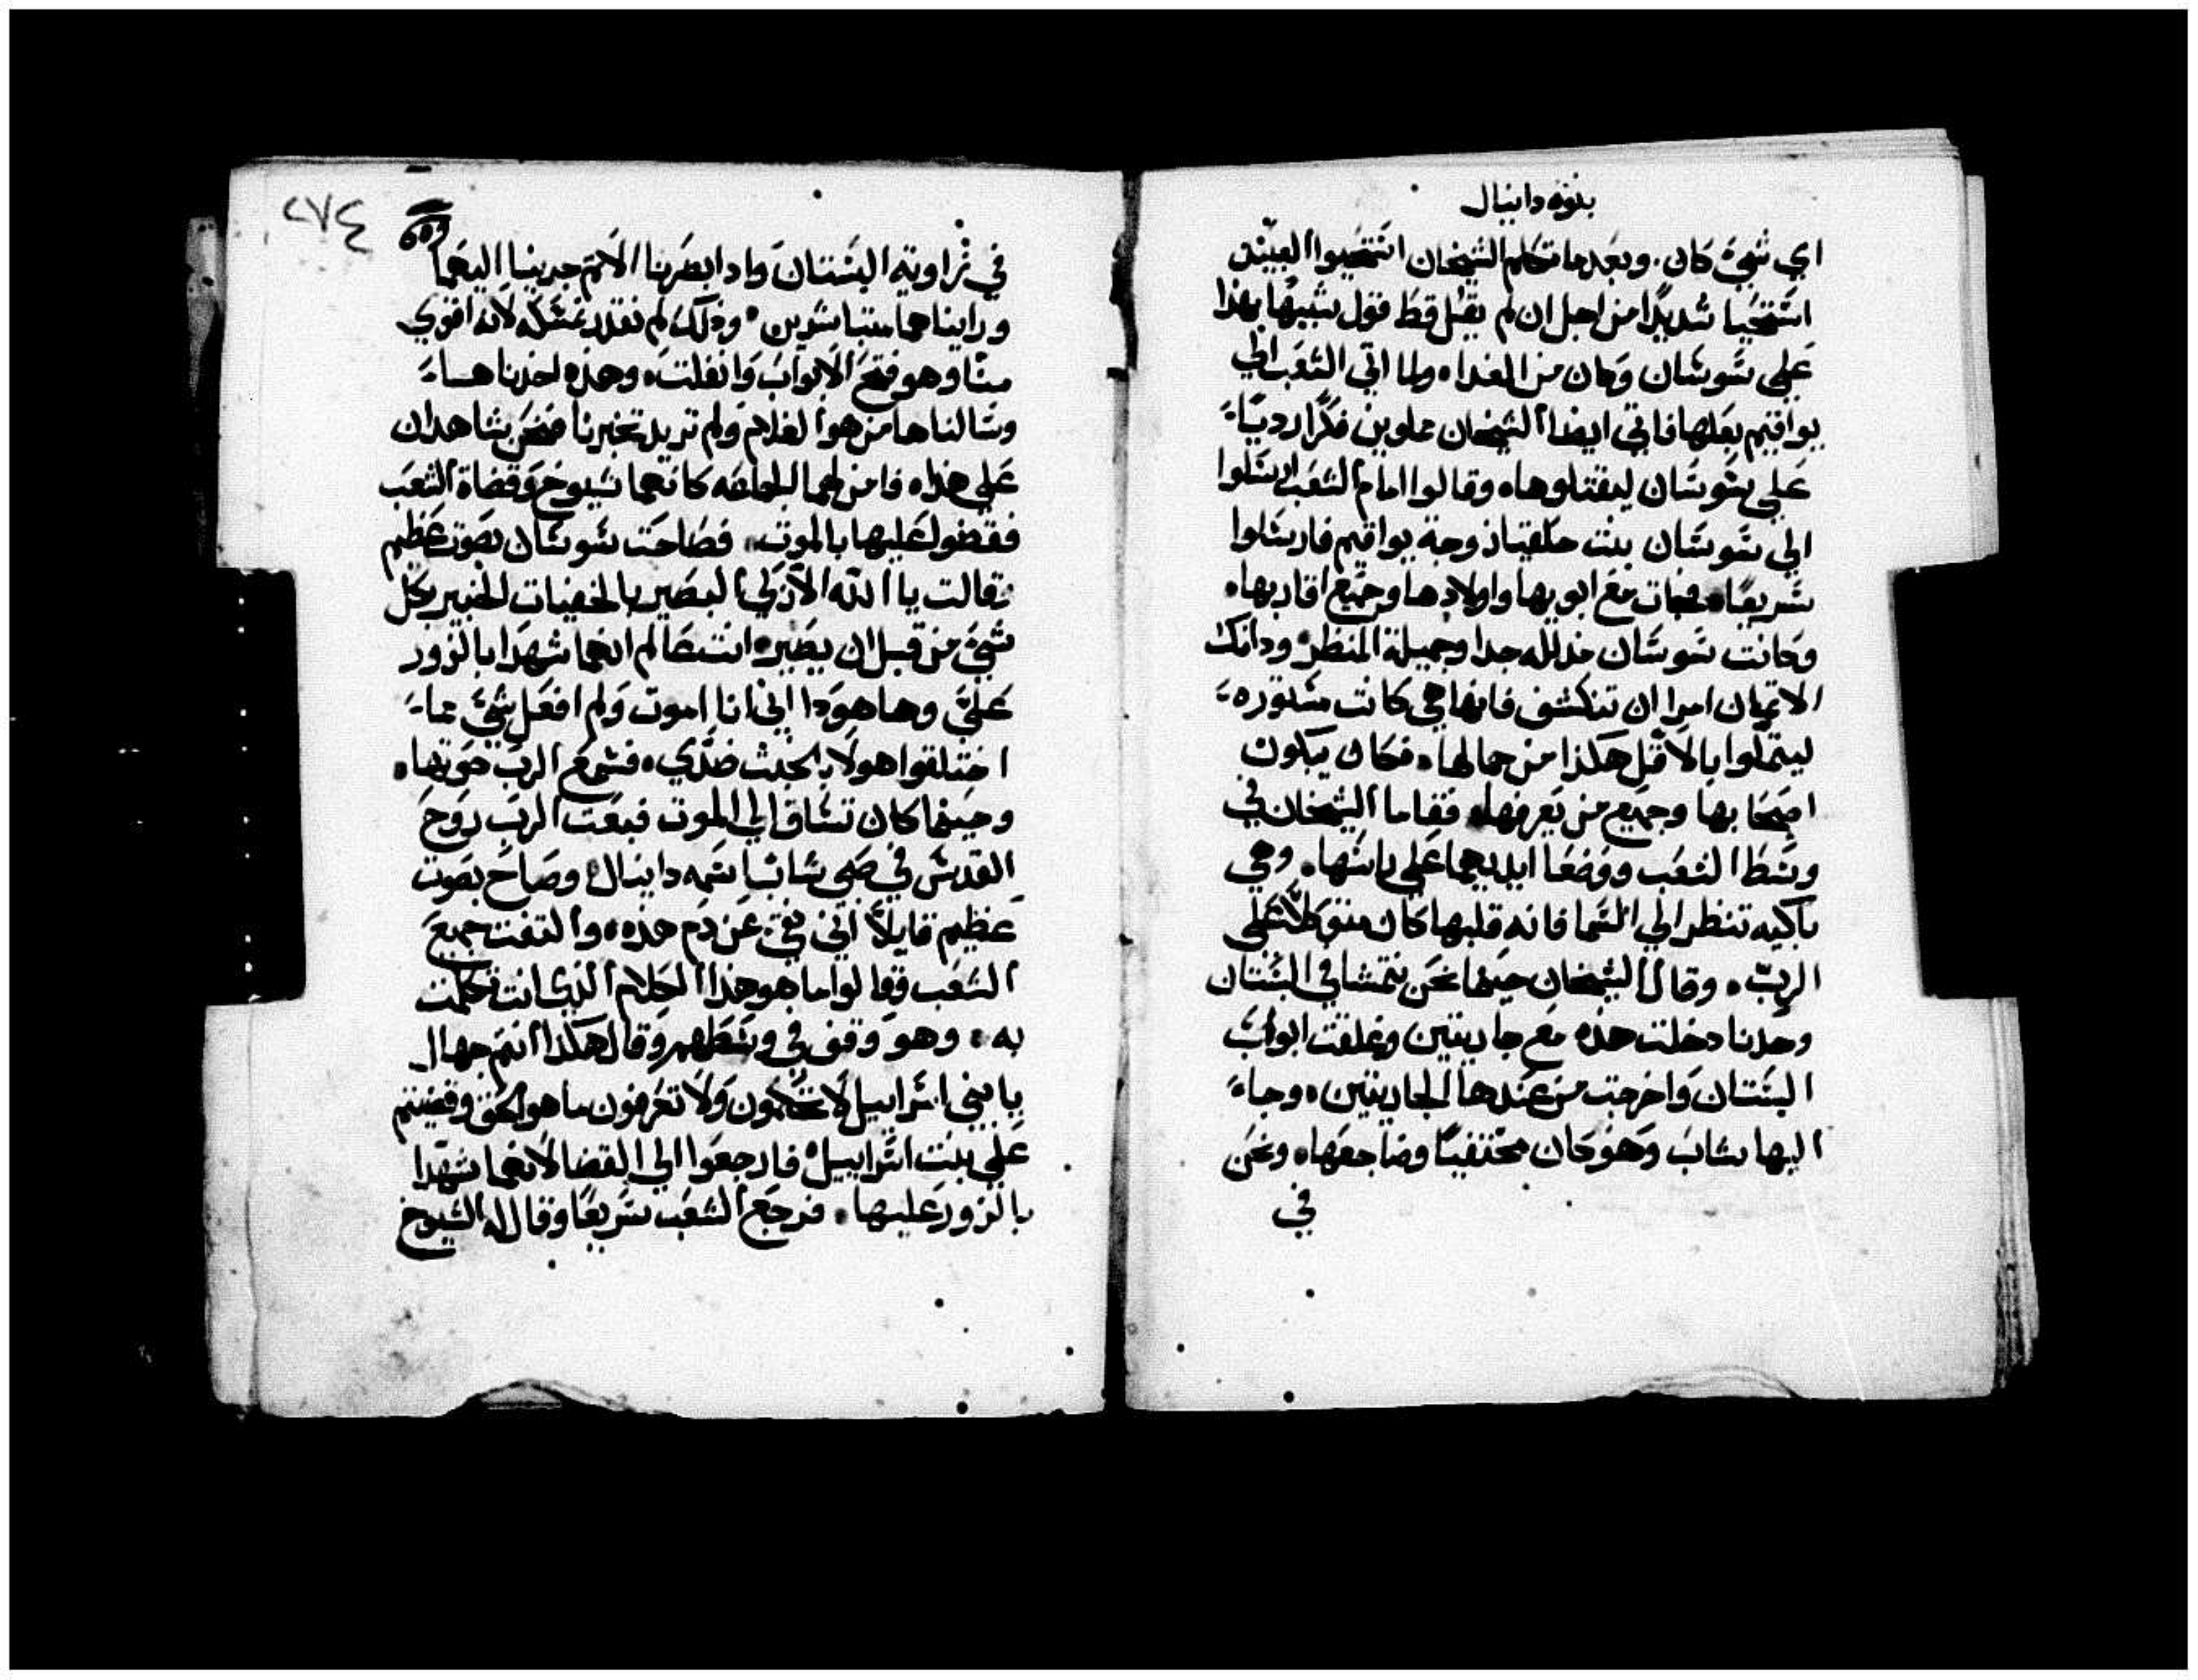 بنوة دانيال
اي شيء كان. وبعدما تكلم الشيخان استحيوا العبيد
استحيا شديدًا من اجل ان لم يقل قط قول شبيها بهذا
على سوسان وكان من الغداه ولما اتي الشعب الي
يواقيم بعلها فاتي ايضا الشيخان مملوين فكرًا رديًا
على سوسان ليقتلوها ه وقالوا امام الشعب ارسلوا
الي سوسان بنت حلقيا زوجة يواقيم فارسلوا
سريعًا ه فجات مع ابويها واولادها وجميع اقاربها ه
وكانت سوسان مدللة جدا وجميلة المنظر ه وذانك
الاثيمان امرا ان تنكشف فانها هي كانت مستوره
ليتملوا بالاقل هكذا من جمالها ه فكان يبكون
اصحابها وجميع من يعرفها ه فقاما الشيخان في
وسط الشعب ووضعا ايديهما على راسها ه وهي
باكيه تنظر الي السما فانه قلبها كان متوكلًا على
الرب ه وقال الشيخان حينما نحن نتمشا في البستان
وحدنا دخلت هذه مع جاريتين وغلقت ابواب
البستان واخرجت من عندها الجاريتين ه وجاء
اليها شاب وهو كان مختفيًا وضاجعها ه ونحن
في
٢٧٤
في زاوية البستان واذ ابصرنا الاثم جرينا اليهما
وراينا هما متباشرين ه وذلك لم نقدر نمسكه لانه اقوي
منا وهو فتح الابواب وانفلت ه وهذه اخذناها
وسالناها من هو الغلام ولم تريد تخبرنا فنحن شاهدان
على هذا ه فامن لهما الجماعه كانهما شيوخ وقضاة الشعب
فقضوا عليها بالموت ه فصاحت سوسان بصوت عظيم
وقالت يا الله الازلي البصير بالخفيات الخبير بكل
شيء من قبل ان يصير ه انت عالم انهما شهدا بالزور
علي وها هوذا اني انا اموت ولم افعل شيء مما
اختلقوا هولاء بالخبث ضدي ه فسمع الرب صوتها ه
وحينما كان تساق الي الموت فبعث الرب روح
القدس في صبي شاب اسمه دانيال ه وصاح بصوت
عظيم قايلًا اني نقي عن دم هذه ه والتفت جميع
الشعب وقالوا ما هو هذا الكلام الذي انت تكلمت
به ه وهو وقف في وسطهم وقال هكذا انتم جهال
يا بني اسراييل لا تحكمون ولا تعرفون ما هو الحق وقضيتم
على بنت اسراييل ه فارجعوا الي القضا لانهما شهدا
بالزور عليها ه فرجع الشعب سريعًا وقال له الشيوخ